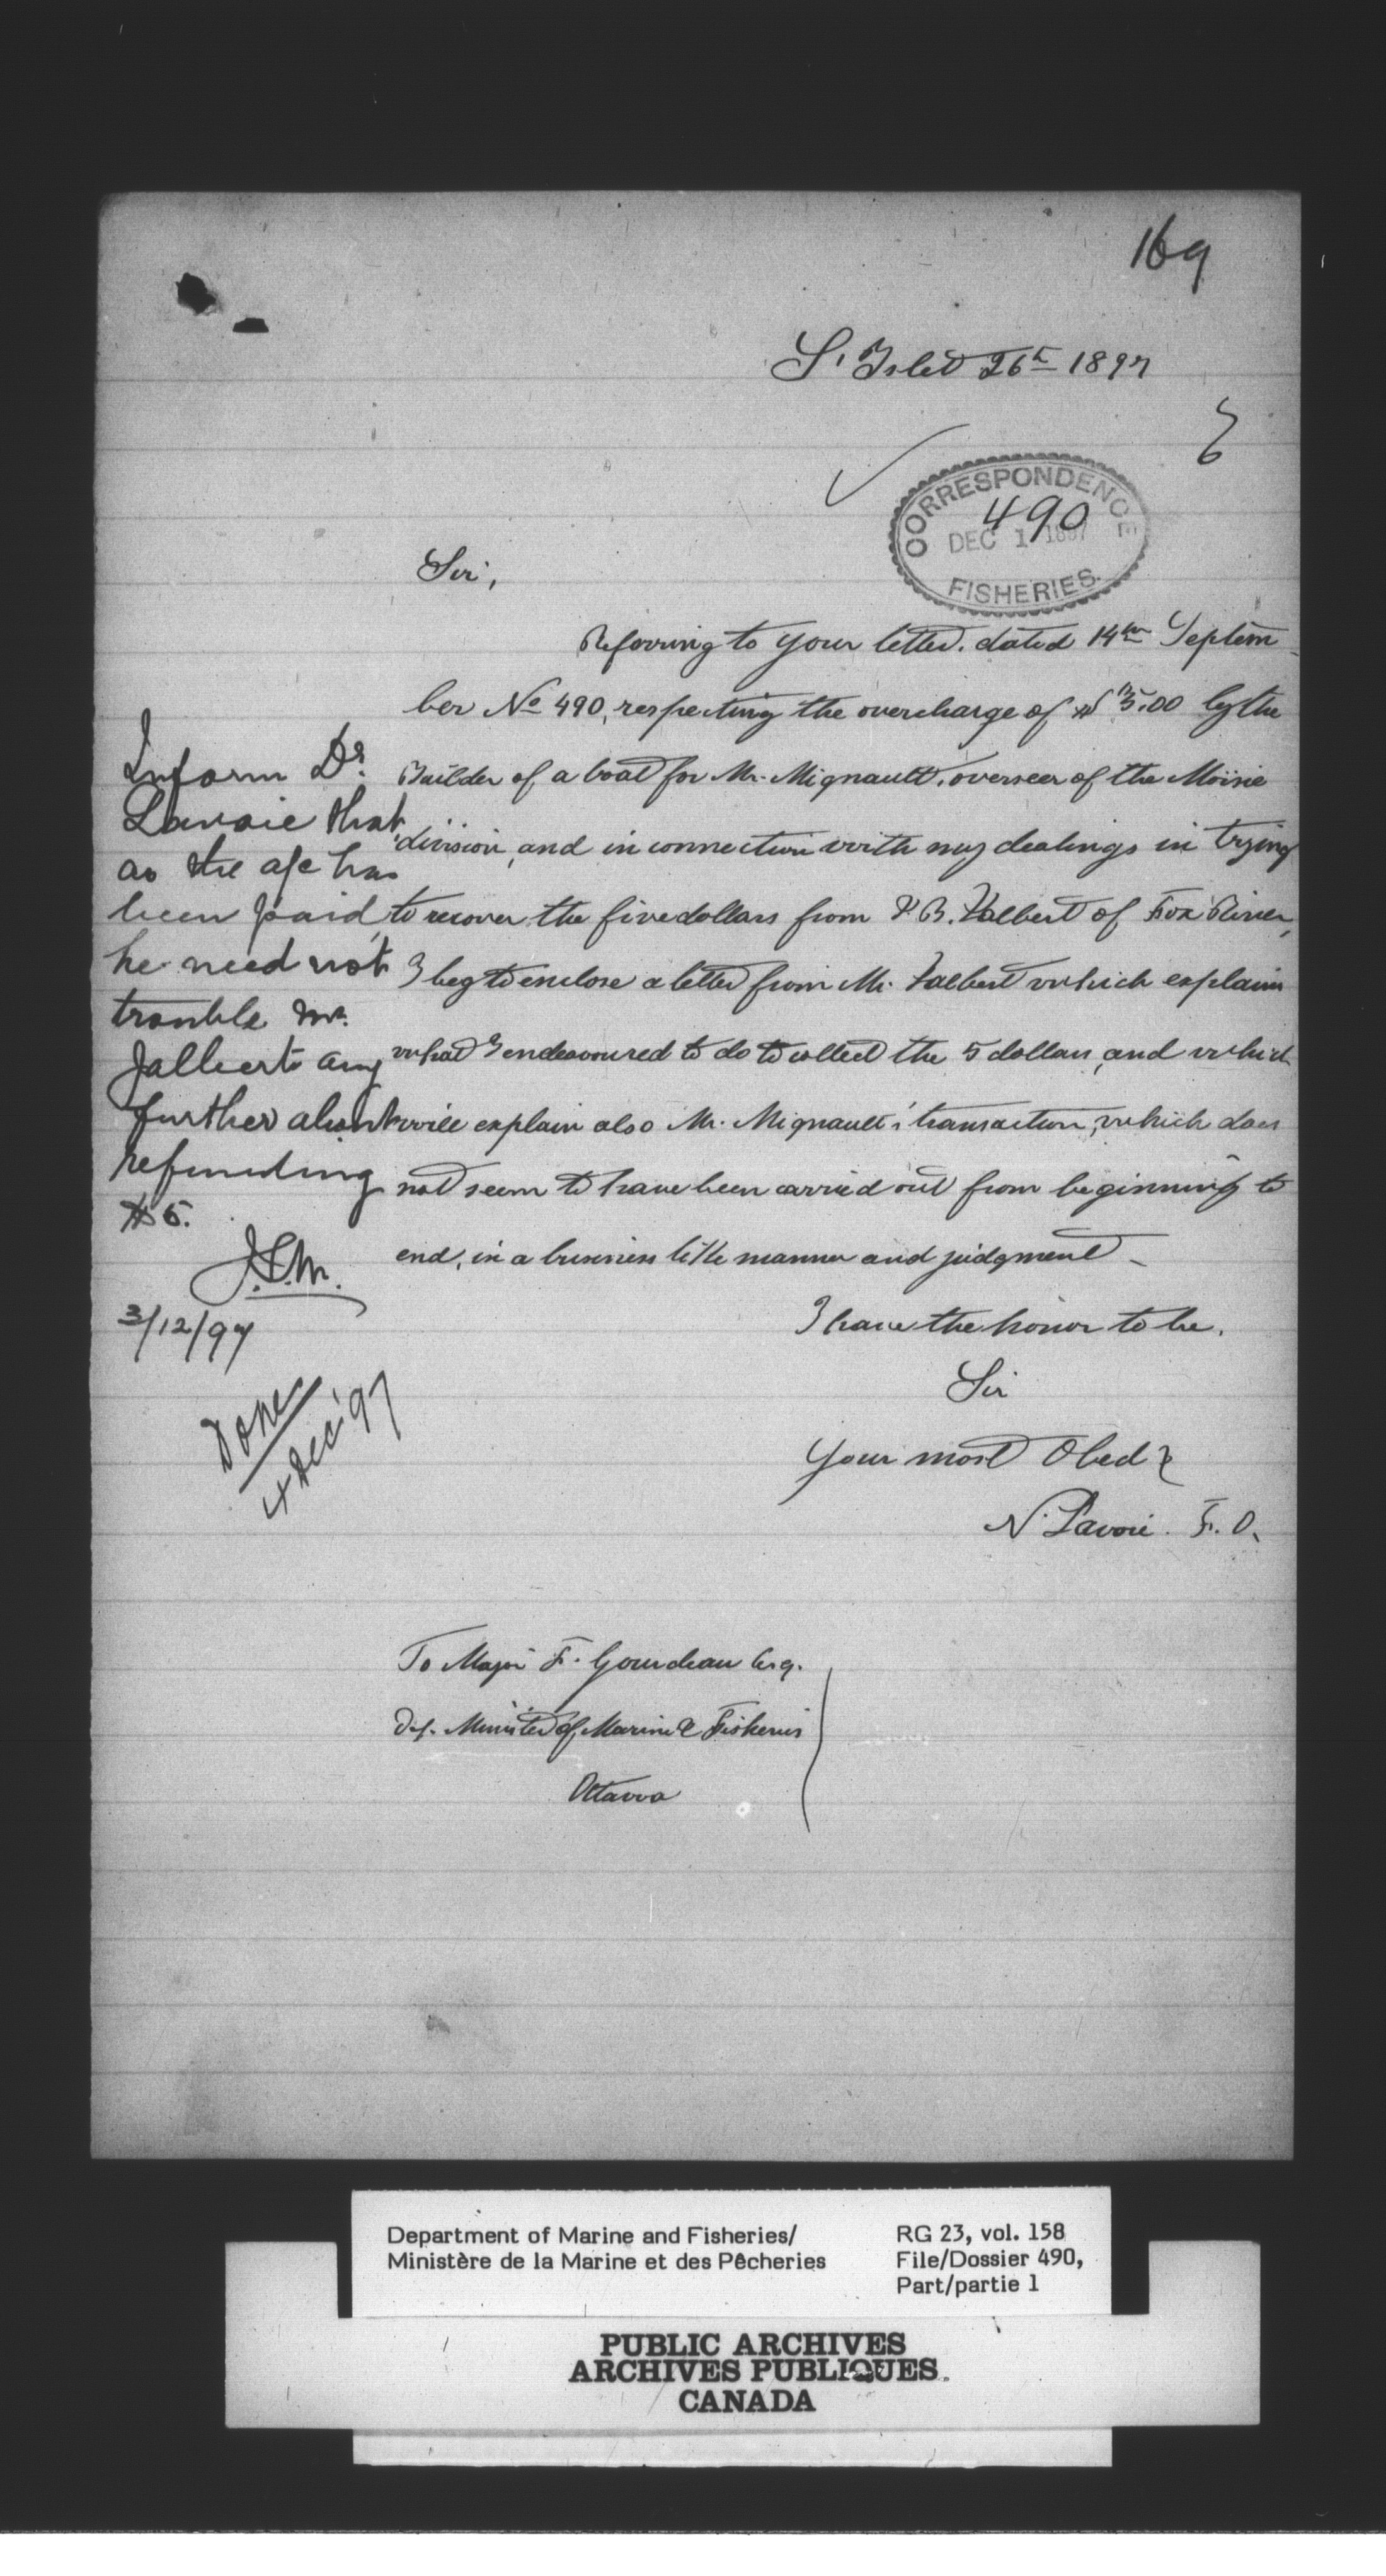 169
L'Islet 26th 1897
6
CORRESPONDENCE
490
DEC 1 1897
FISHERIES.
Sir,
Referring to your letter. dated 14th Septem
ber No 490, respecting the overcharge of $5.00 by the
Builder of a boat for Mr. Mignault, overseer of the Moisie
division, and in connection with my dealings in trying
to recover the five dollars from J. B. Jalbert of Fox River,
I beg to enclose a letter from Mr. Jalbert which explains
what I endeavoured to do to collect the 5 dollars, and which
will explain also Mr. Mignault's transaction, which does
not seem to have been carried out from beginning to
end, in a business like manner and judgment _
I have the honor to be,
Sir
Your most Obedt
N. Lavoie. F. O.
To Major F. Gourdeau Esq.
Dep. Minister of Marine & Fisheries
Ottawa
Inform Dr.
Lavoie that
as the a/c has
been paid
he need not
trouble Mr.
Jalbert any
further about
refunding
$5.
J.S.W.
3/12/97
Done
4 Dec '97
Department of Marine and Fisheries/
Ministère de la Marine et des Pêcheries
RG 23, vol. 158
File/Dossier 490,
Part/partie 1
PUBLIC ARCHIVES
ARCHIVES PUBLIQUES
CANADA